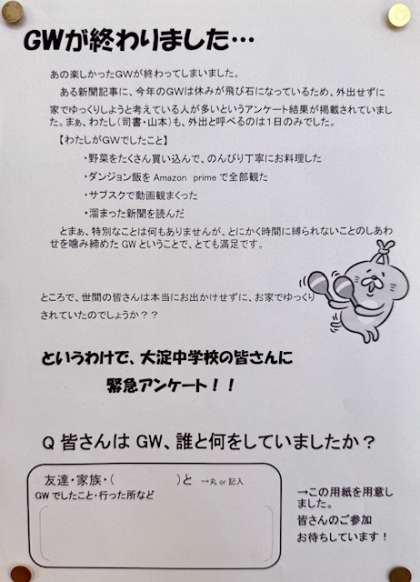 GWが終わりました…
あの楽しかったGWが終わってしまいました。
ある新聞記事に、今年のGWは休みが飛び石になっているため、外出せずに
家でゆっくりしようと考えている人が多いというアンケート結果が掲載されていまし
た。まぁ、わたし（司書・山本）も、外出と呼べるのは1日のみでした。
【わたしがGWでしたこと】
・野菜をたくさん買い込んで、のんびり丁寧にお料理した
・ダンジョン飯を Amazon prime で全部観た
・サブスクで動画観まくった
・溜まった新聞を読んだ
とまぁ、特別なことは何もありませんが、とにかく時間に縛られないことのしあわ
せを噛み締めた GW ということで、とても満足です。
ところで、世間の皆さんは本当にお出かけせずに、お家でゆっくり
されていたのでしょうか？？
というわけで、大淀中学校の皆さんに
緊急アンケート！！
Q 皆さんは GW、誰と何をしていましたか？
友達・家族・（ ）と →丸 or 記入
GW でしたこと・行った所など
→この用紙を用意し
ました。
皆さんのご参加
お待ちしています！